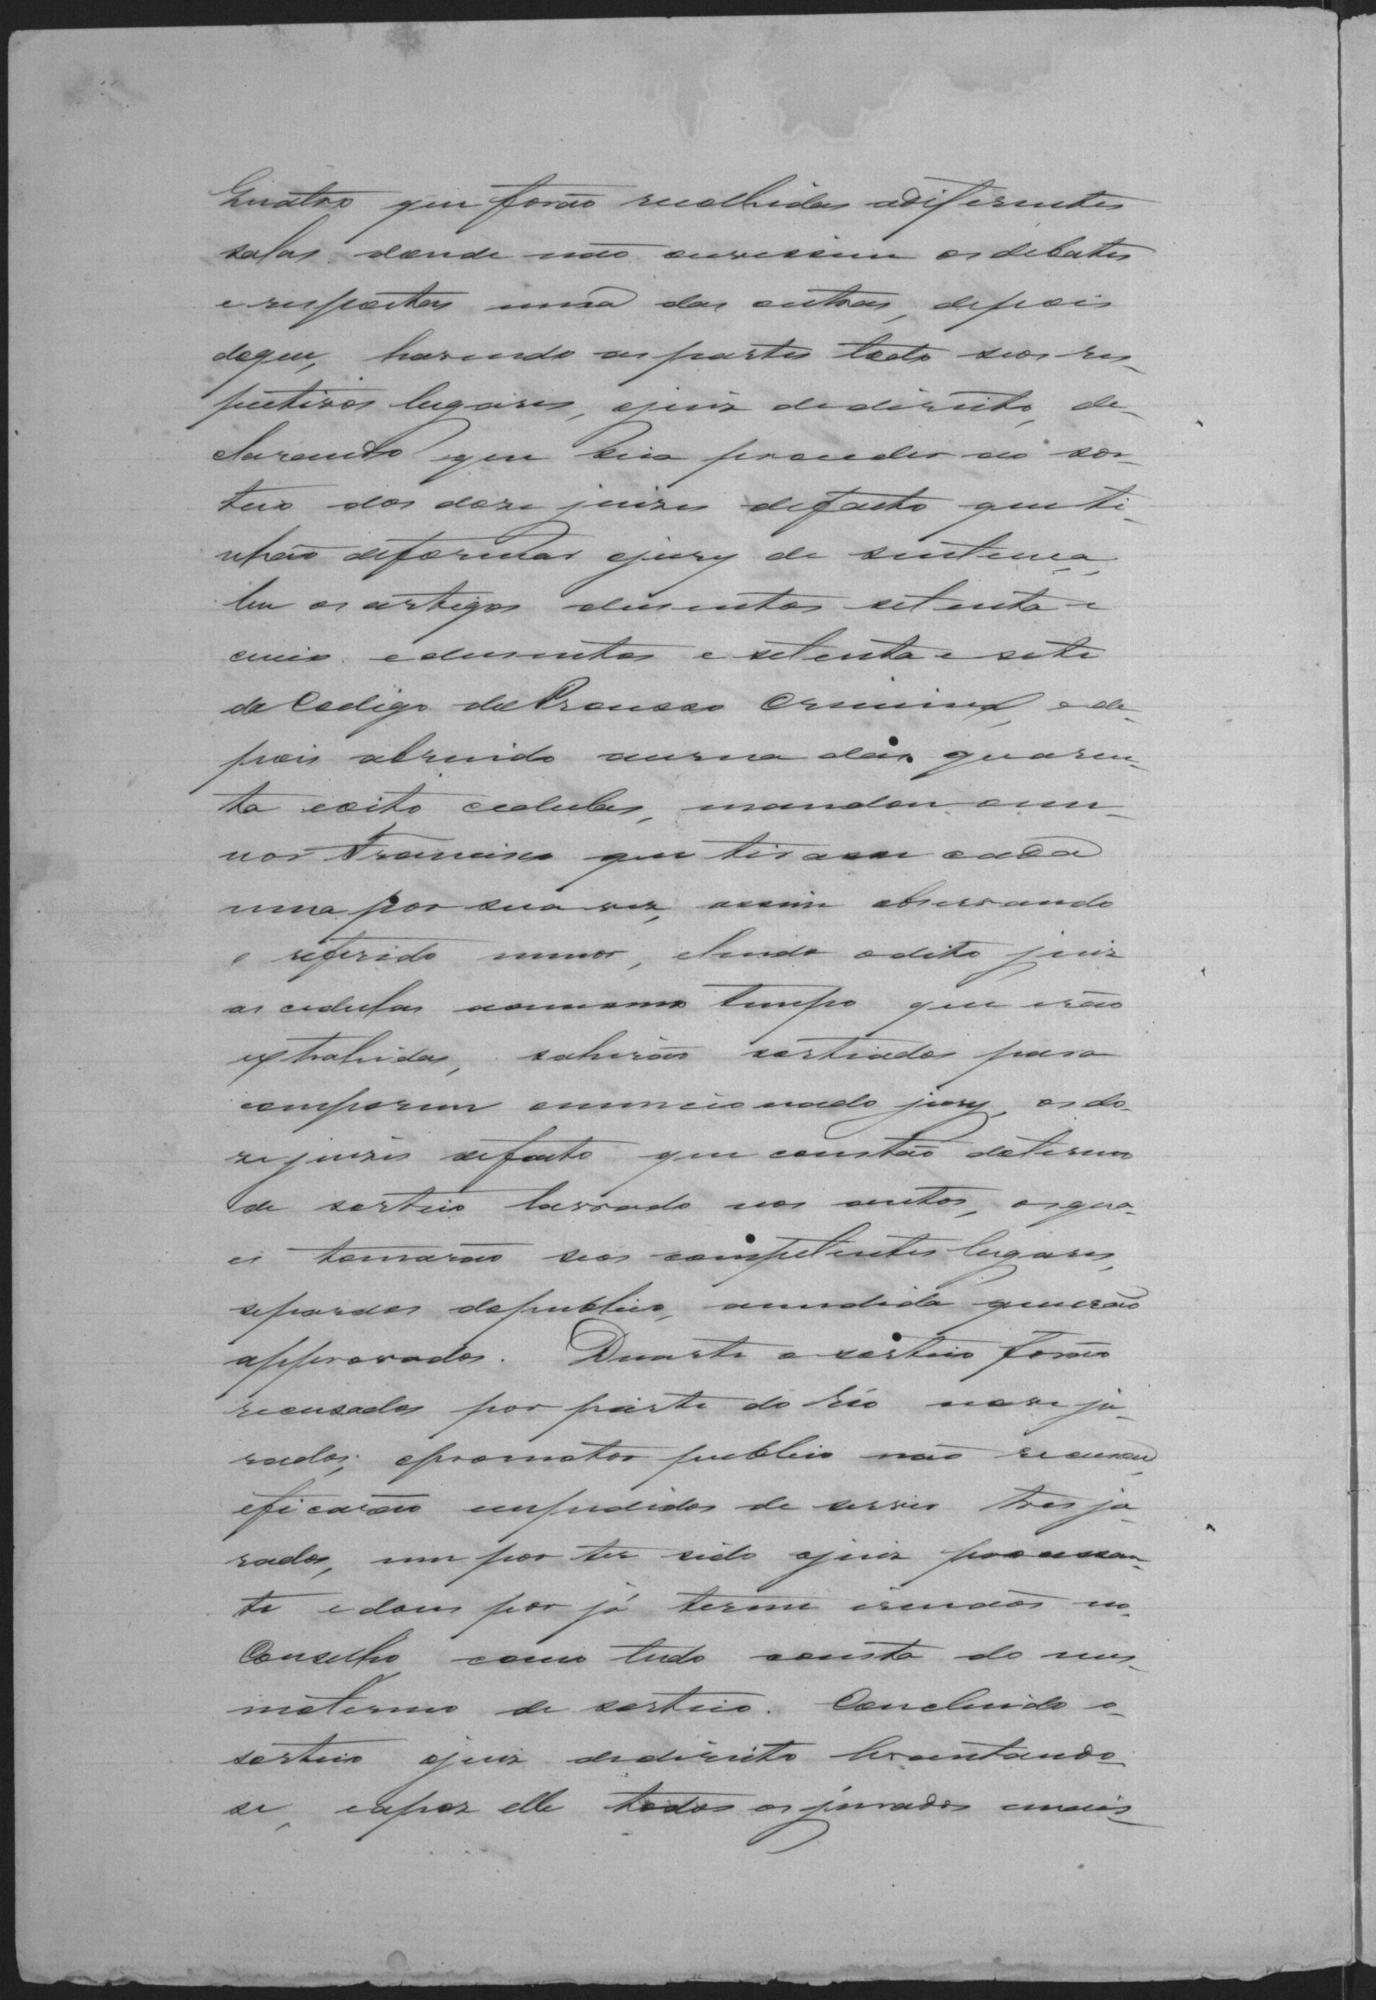 Quatro que forão recolhidas adiferentes
salas donde não ouvissem os debates
e respostas umas das outras, depois
doque, havendo as partes todo seos res-
pectivos lugares, ojuiz dedireito, de-
clarando que hia proceder ao sor-
teio dos doze juizes defacto que ti-
nhão deformar ojury de sentença,
leu os artigos dusentos setenta e
cinco edusentos e setenta e sete
do Codigo do Processo Criminal, e de-
pois abrindo aurna das quaren-
ta eoito cedulas, mandou omen-
nor Francisco que tirasse cada
uma por sua vez, assim observando
o referido menor, elendo odito juiz
as cedulas aomesmo tempo que erão
extrahidas, sahirão sorteados para
comporem omencionado jury, os do-
ze juizes defacto que constão dotermo
de sorteio lavrado nos autos, osqua-
es tomarão seos competentes lugares,
separados dopublico, amedida queerão
approvados. Durante o sorteio forão
recusados por parte do réo nove ju-
rados; opromotor publico não recusou,
eficarão empedidos de servir tres ju-
rados, um por ter sido ojuiz processan-
te edous por já terem irmãos no
Conselho como tudo consta do mes-
motermo de sorteio. Concluido o
sorteio ojuiz dedireito levantando-
se, eapoz elle todos os jurados emais